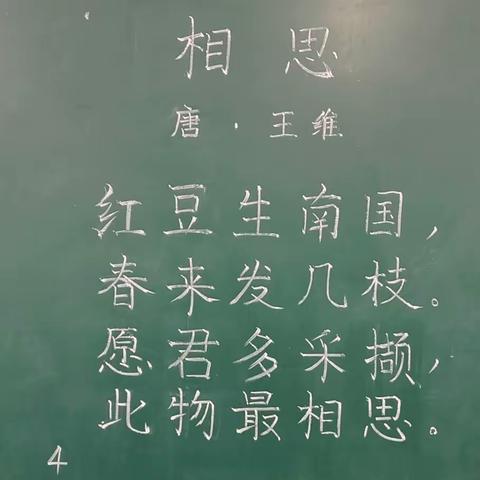 相思
唐·王维
红豆生南国，
春来发几枝。
愿君多采撷，
此物最相思。
4